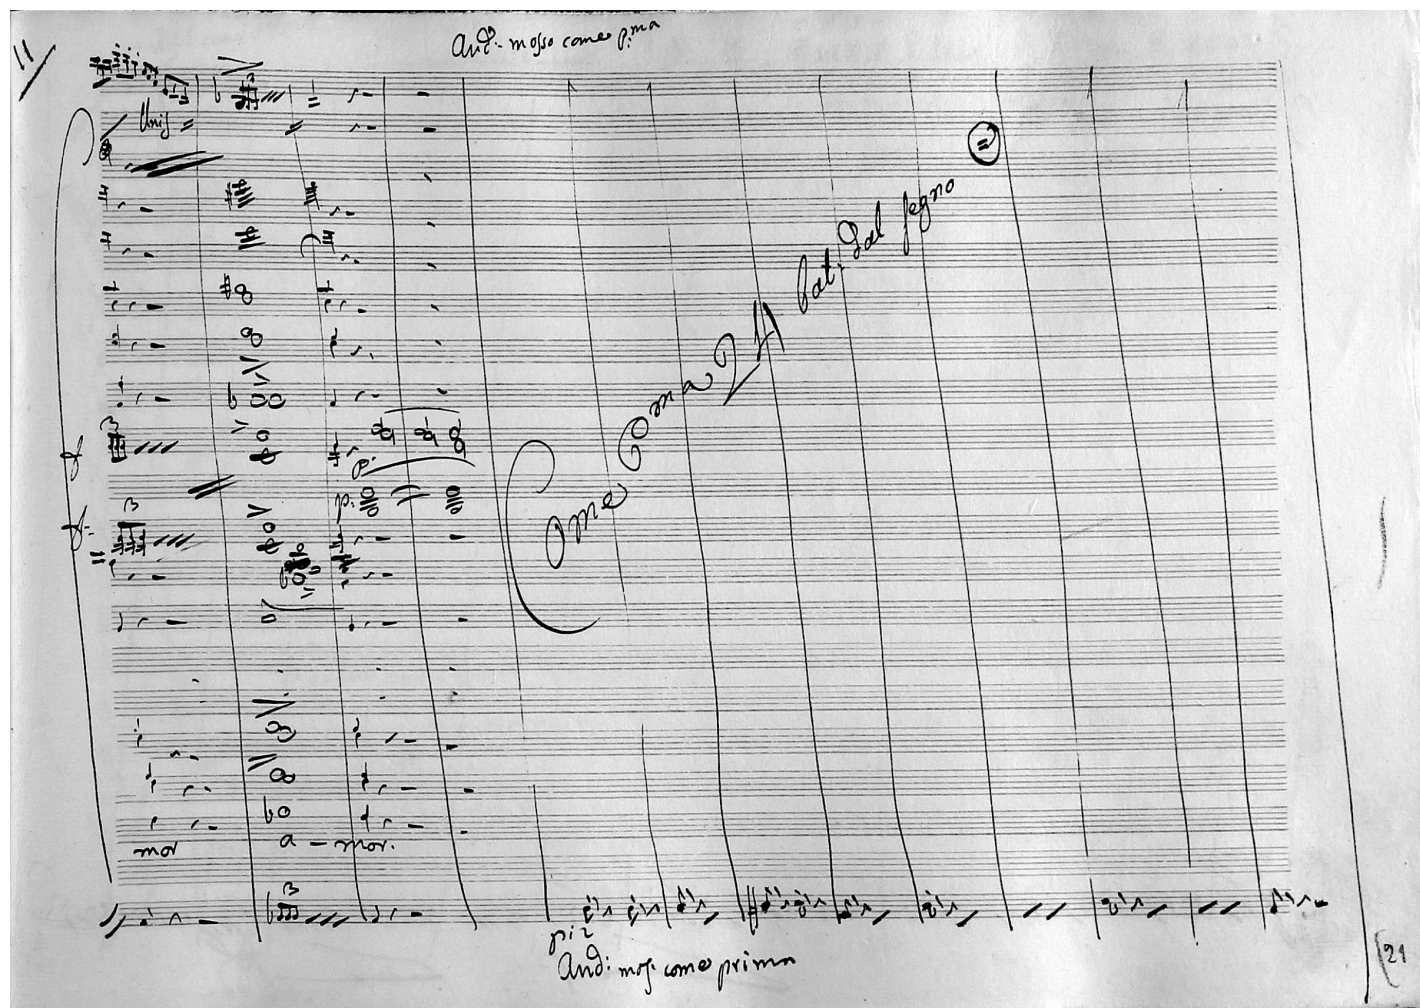 11
And.º mosso come p.ma
Unis
Come Coma 24 bat: dal segno
f
p.
p.
f.
mor a - mor.
piz
And: mosº come prima
21